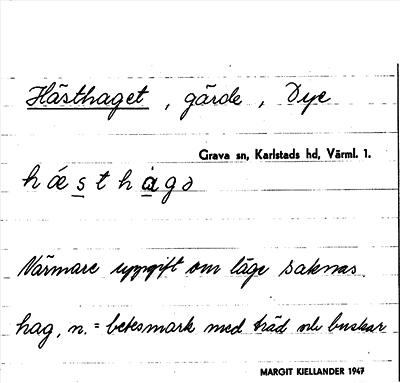 Hästhaget, gärde, Dye
Grava sn, Karlstads hd, Värml. 1.
hæsthagə
Närmare uppgift om läge saknas.
hag, n. = betesmark med träd och buskar
MARGIT KJELLANDER 1947